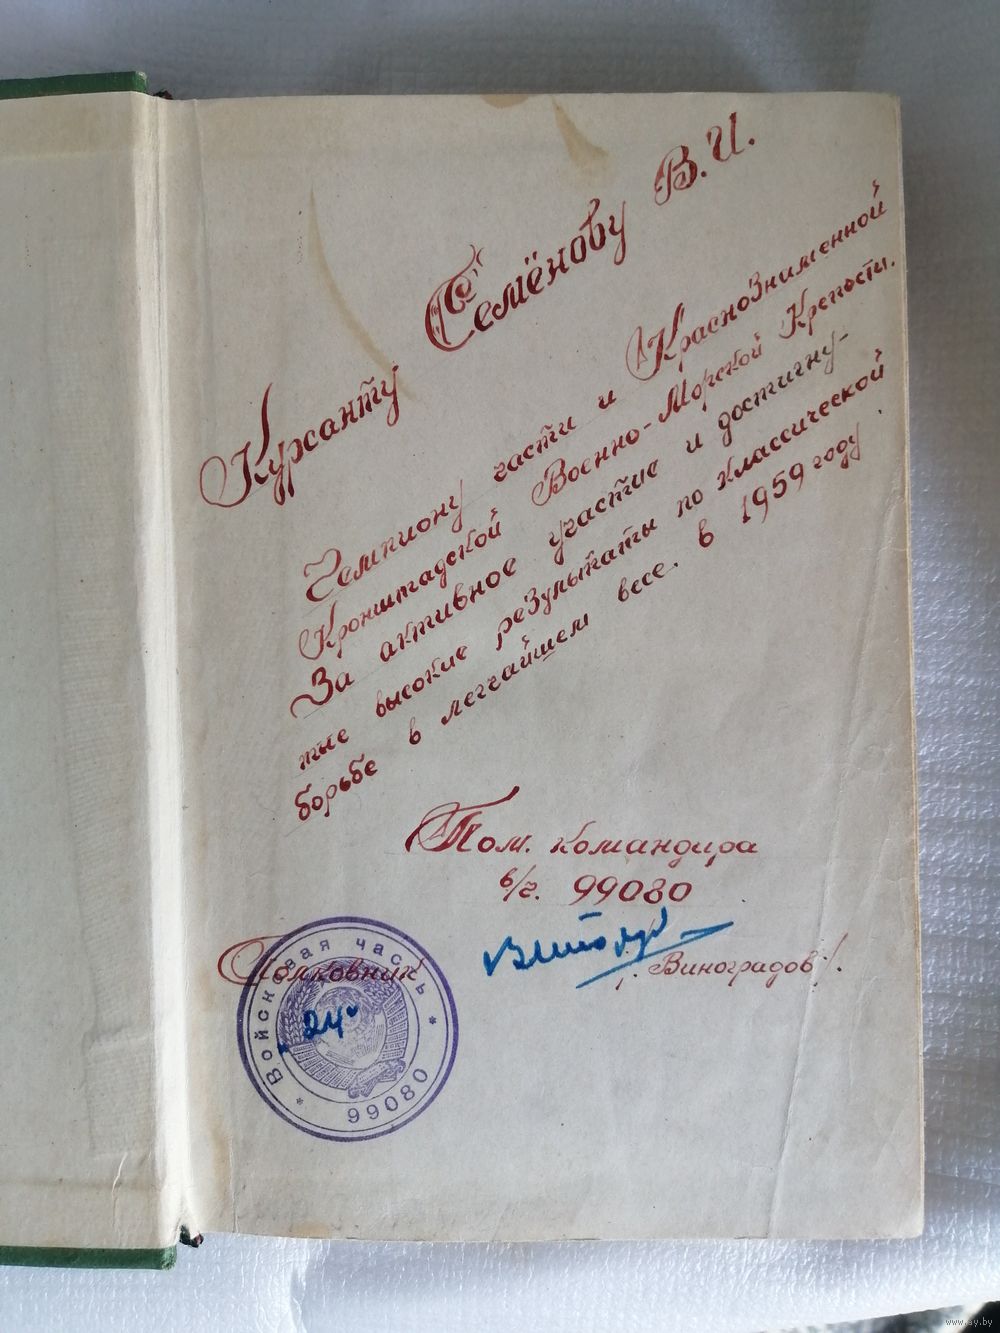 Курсанту Семёнову В.И.
Чемпиону части и Краснознаменной
Кронштадской Военно-Морской Крепости.
За активное участие и достигну-
тые высокие результаты по классической
борьбе в легчайшем весе. в 1959 году
Пом. командира
в/ч. 99080
Полковник /Виноградов/.
"24"
* Войсковая часть *
99080
www.ay.by